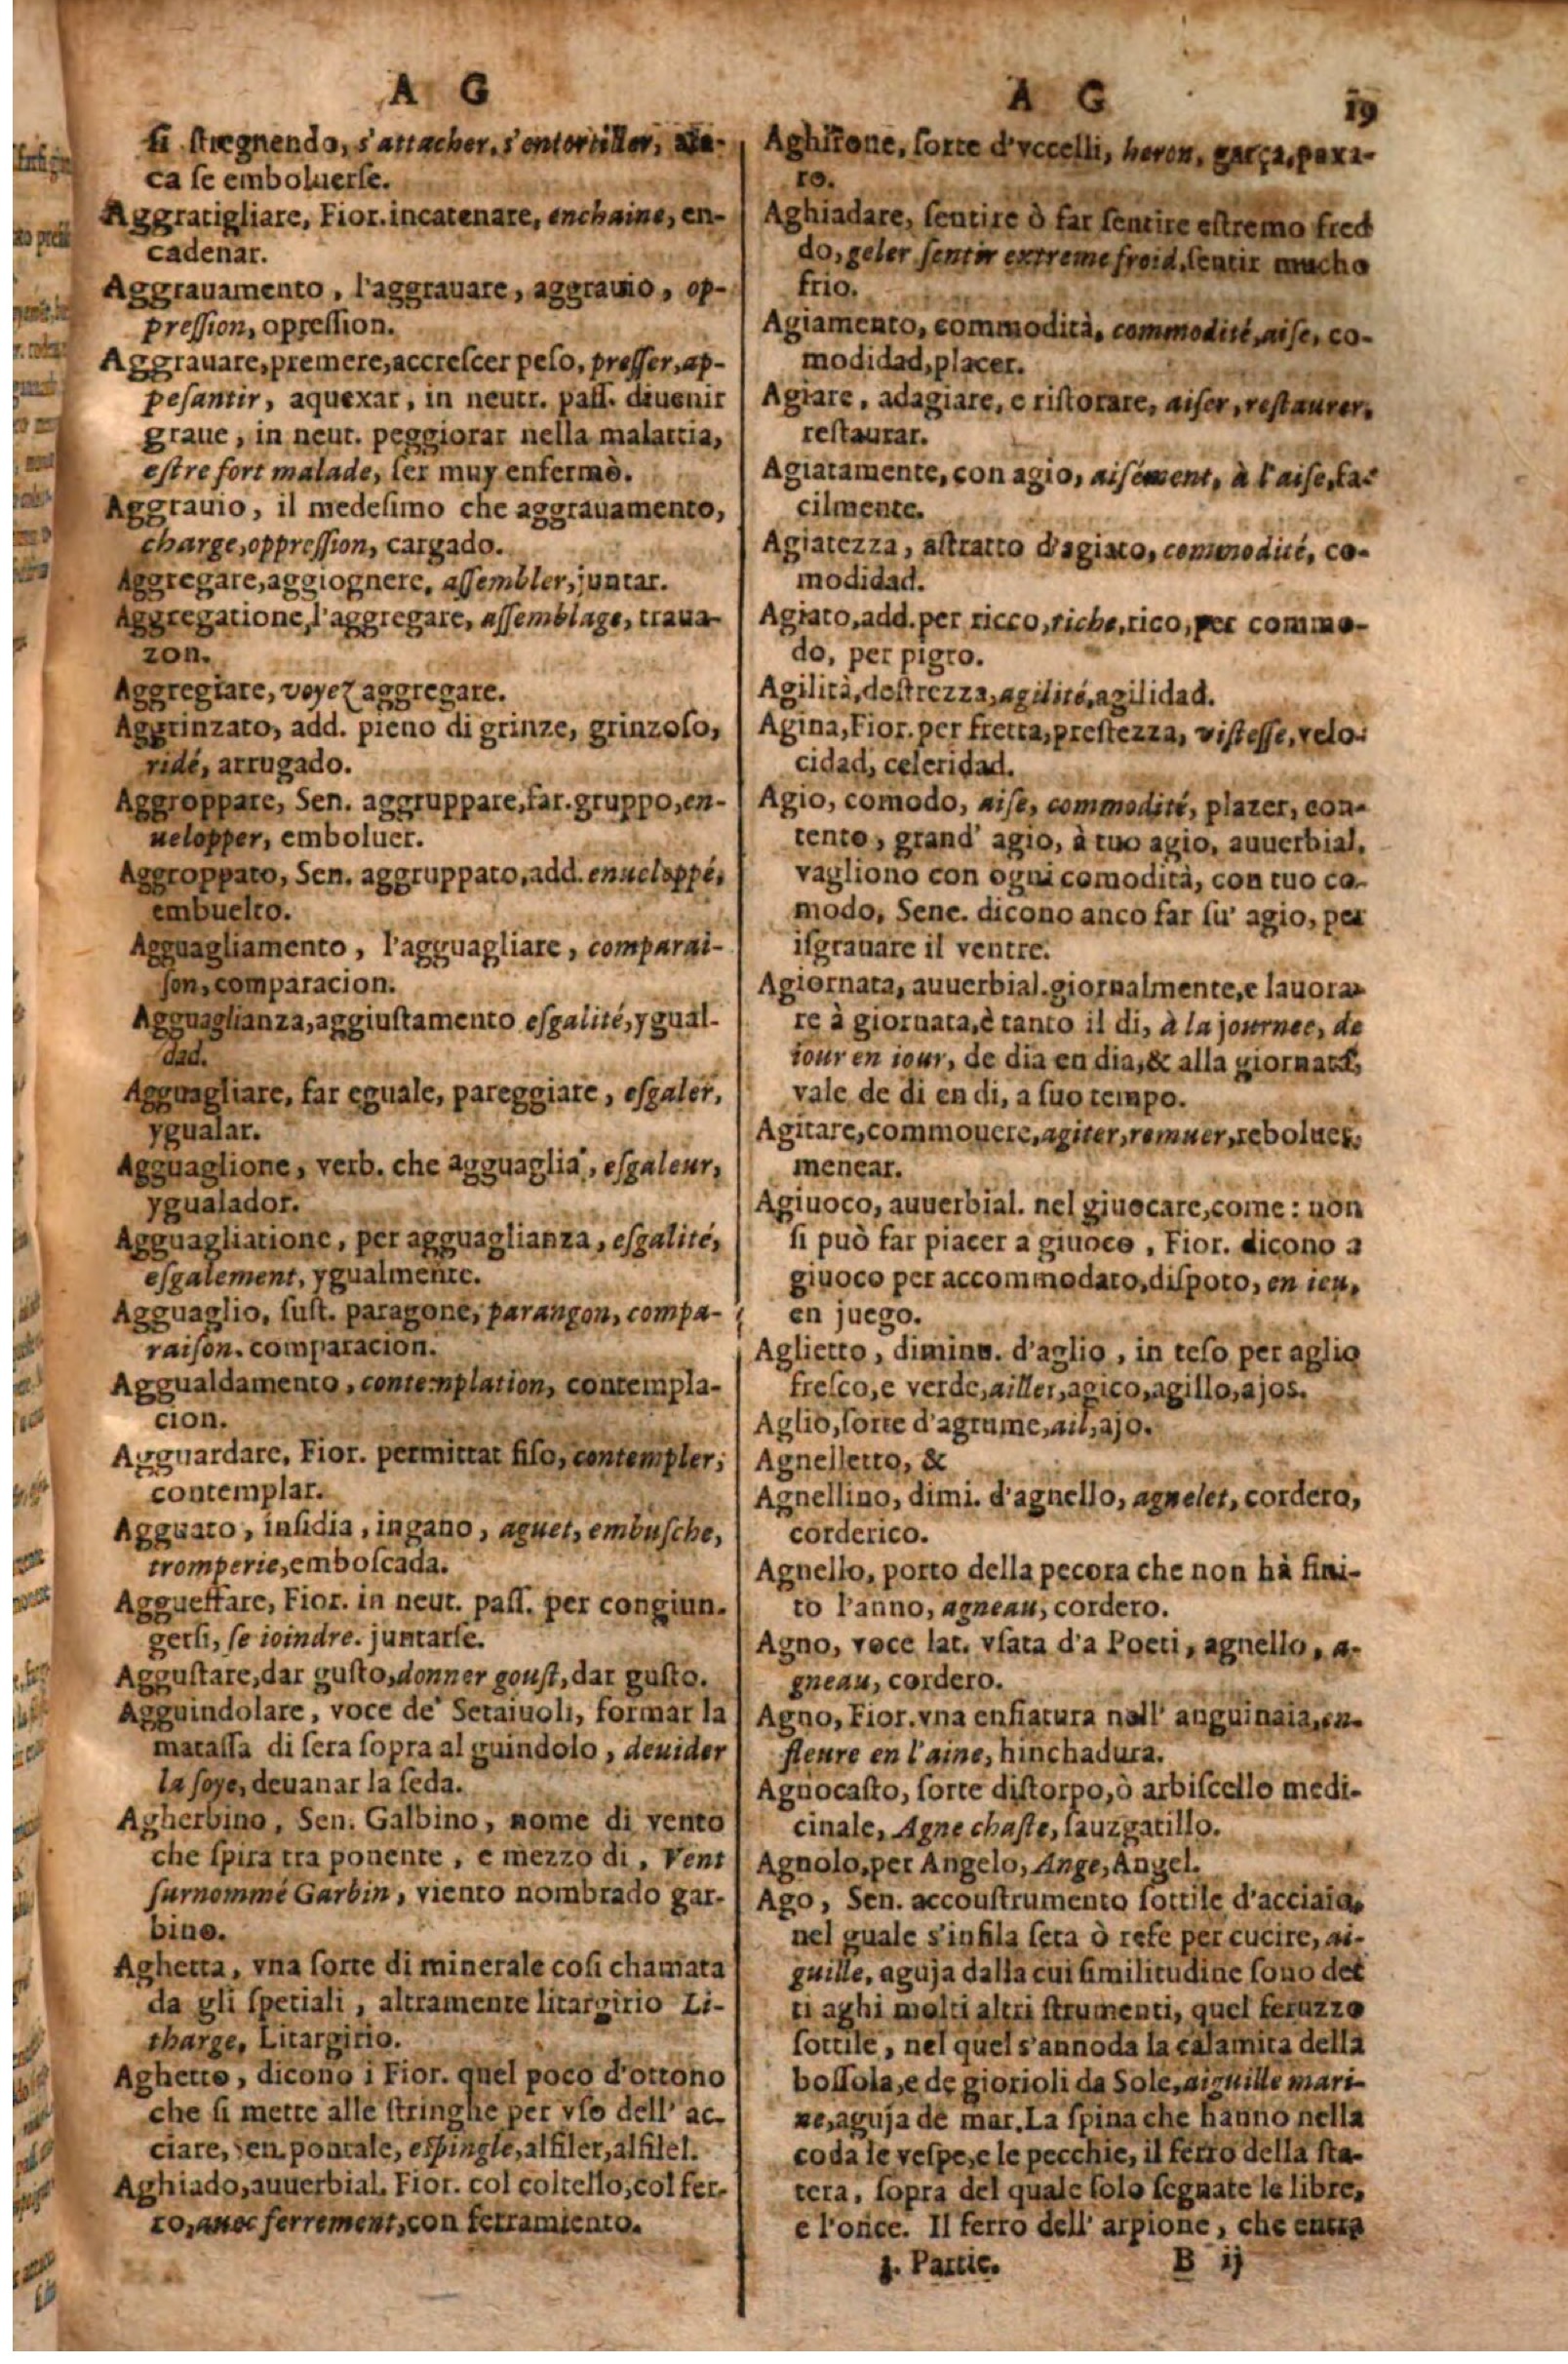 A G
ſi ſtregnendo, s'attacher, s'entortiller, ata-
ca ſe emboluerſe.
Aggratigliare, Fior. incatenare, enchaine, en-
cadenar.
Aggrauamento, l'aggrauare, aggrauio, op-
preſſion, opreſſion.
Aggrauare, premere, accreſcer peſo, preſſer, ap-
peſantir, aquexar, in neutr. paſſ. diuenir
graue, in neut. peggiorar nella malattia,
eſtre fort malade, ſer muy enfermò.
Aggrauio, il medeſimo che aggrauamento,
charge, oppreſſion, cargado.
Aggregare, aggiognere, aſſembler, juntar.
Aggregatione, l'aggregare, aſſemblage, traua-
zon.
Aggregiare, voyez aggregare.
Aggrinzato, add. pieno di grinze, grinzoſo,
ridé, arrugado.
Aggroppare, Sen. aggruppare, far. gruppo, en-
uelopper, emboluer.
Aggroppato, Sen. aggruppato, add. enueloppé,
embuelto.
Agguagliamento, l'agguagliare, comparai-
ſon, comparacion.
Agguaglianza, aggiuſtamento eſgalité, ygual-
dad.
Agguagliare, far eguale, pareggiare, eſgaler,
ygualar.
Agguaglione, verb. che agguaglia, eſgaleur,
ygualador.
Agguagliatione, per agguaglianza, eſgalité,
eſgalement, ygualmente.
Agguaglio, ſuſt. paragone, parangon, compa-
raiſon. comparacion.
Aggualdamento, contemplation, contempla-
cion.
Agguardare, Fior. permittat fiſo, contempler,
contemplar.
Agguato, inſidia, ingano, aguet, embuſche,
tromperie, emboſcada.
Aggueffare, Fior. in neut. paſſ. per congiun.
gerſi, ſe ioindre. juntarſe.
Agguſtare, dar guſto, donner gouſt, dar guſto.
Agguindolare, voce de' Setaiuoli, formar la
mataſſa di ſera ſopra al guindolo, deuider
la ſoye, deuanar la ſeda.
Agherbino, Sen. Galbino, nome di vento
che ſpira tra ponente, e mezzo di, Vent
ſurnommé Garbin, viento nombrado gar-
bino.
Aghetta, vna ſorte di minerale coſi chamata
da gli ſpetiali, altramente litargirio Li-
tharge, Litargirio.
Aghetto, dicono i Fior. quel poco d'ottono
che ſi mette alle ſtringhe per vſo dell' ac-
ciare, en pontale, eſpingle, alfiler, alfilel.
Aghiado, auuerbial. Fior. col coltello, col fer-
ro, auec ferrement, con ferramiento.
A G 19
Aghirone, ſorte d'vccelli, heron, garça, paxa-
ro.
Aghiadare, ſentire ò far ſentire eſtremo fred
do, geler ſentir extreme froid, ſentir mucho
frio.
Agiamento, commodità, commodité, aiſe, co-
modidad, placer.
Agiare, adagiare, e riſtorare, aiſer, reſtaurer,
reſtaurar.
Agiatamente, con agio, aiſément, à l'aiſe, fa-
cilmente.
Agiatezza, aſtratto d'agiato, commodité, co-
modidad.
Agiato, add. per ricco, riche, rico, per commo-
do, per pigro.
Agilità, deſtrezza, agilité, agilidad.
Agina, Fior. per fretta, preſtezza, viſteſſe, velo-
cidad, celeridad.
Agio, comodo, aiſe, commodité, plazer, con-
tento, grand' agio, à tuo agio, auuerbial.
vagliono con ogni comodità, con tuo co-
modo, Sene. dicono anco far ſu' agio, per
iſgrauare il ventre.
Agiornata, auuerbial. giornalmente, e lauora-
re à giornata, è tanto il di, à la journee, de
iour en iour, de dia en dia, & alla giornata,
vale de di en di, a ſuo tempo.
Agitare, commouere, agiter, remuer, reboluer,
menear.
Agiuoco, auuerbial. nel giuocare, come: non
ſi può far piacer a giuoco, Fior. dicono a
giuoco per accommodato, diſpoto, en ieu,
en juego.
Aglietto, diminu. d'aglio, in teſo per aglio
freſco, e verde, ailler, agico, agillo, ajos.
Aglio, ſorte d'agrume, ail, ajo.
Agnelletto, &
Agnellino, dimi. d'agnello, agnelet, cordero,
corderico.
Agnello, porto della pecora che non hà fini-
to l'anno, agneau, cordero.
Agno, voce lat. vſata d'a Poeti, agnello, a-
gneau, cordero.
Agno, Fior. vna enfiatura nall' anguinaia, en-
fleure en l'aine, hinchadura.
Agnocaſto, ſorte diſtorpo, ò arbiſcello medi-
cinale, Agne chaſte, ſauzgatillo.
Agnolo, per Angelo, Ange, Angel.
Ago, Sen. accouſtrumento ſottile d'acciaio,
nel guale s'infila ſeta ò refe per cucire, ai-
guille, aguja dalla cui ſimilitudine ſono det
ti aghi molti altri ſtrumenti, quel feruzzo
ſottile, nel quel s'annoda la calamita della
boſſola, e de giorioli da Sole, aiguille mari-
ne, aguja de mar. La ſpina che hanno nella
coda le veſpe, e le pecchie, il ferro della ſta-
tera, ſopra del quale ſolo ſegnate le libre,
e l'once. Il ferro dell' arpione, che entra
1. Partie. B ij